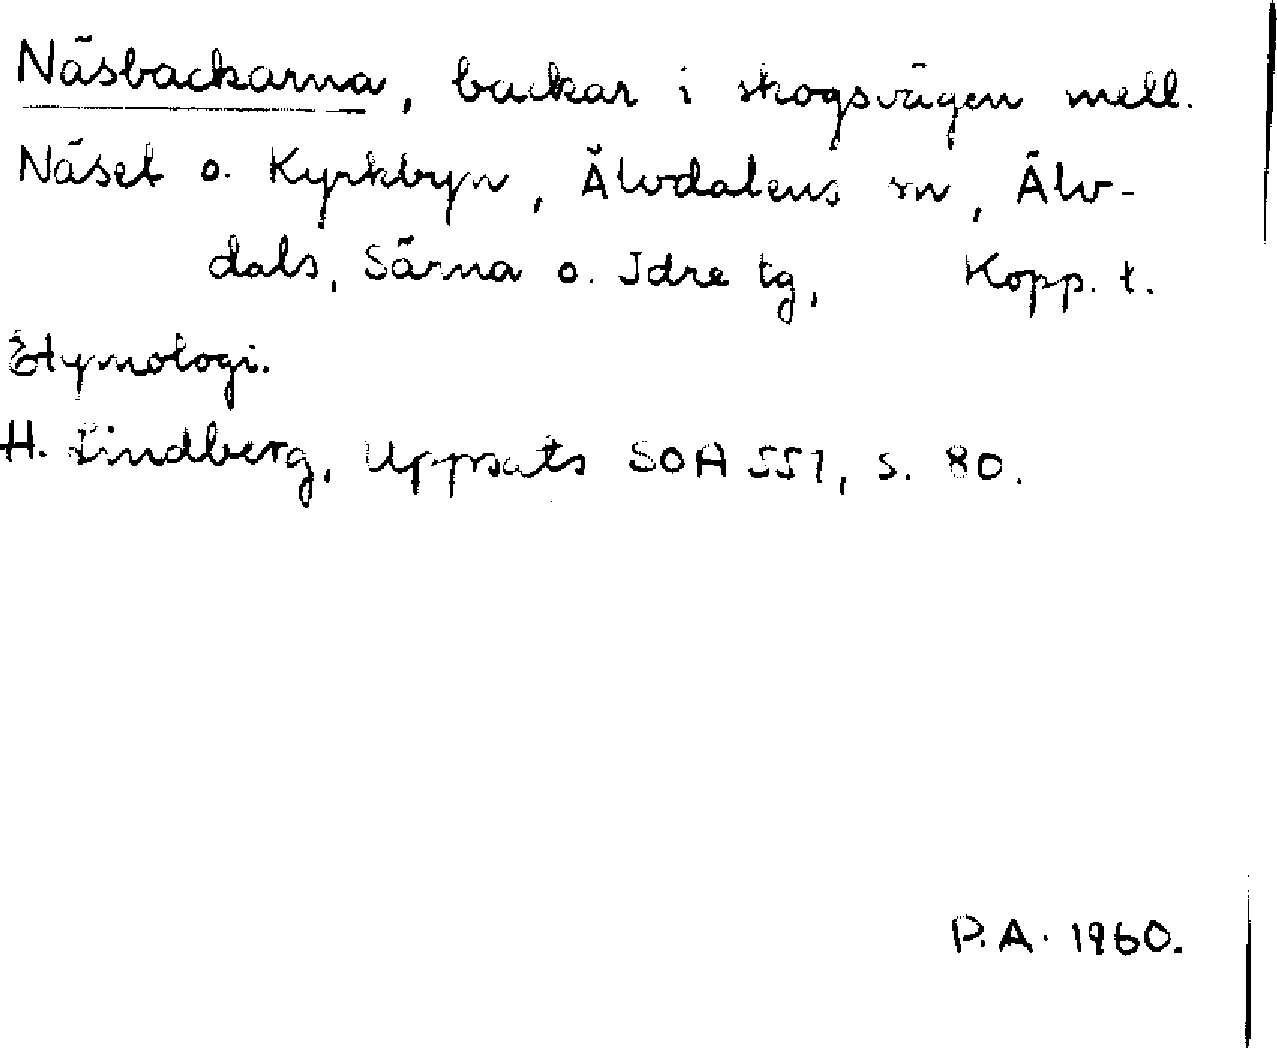 Näsbackarna, backar i skogsvägen mell.
Näset o. Kyrkbyn, Älvdalens sn, Älv-
dals, Särna o. Idre tg, Kopp. l.
Etymologi.
H. Lindberg, Uppsats SOA 551, s. 80.
P.A. 1960.